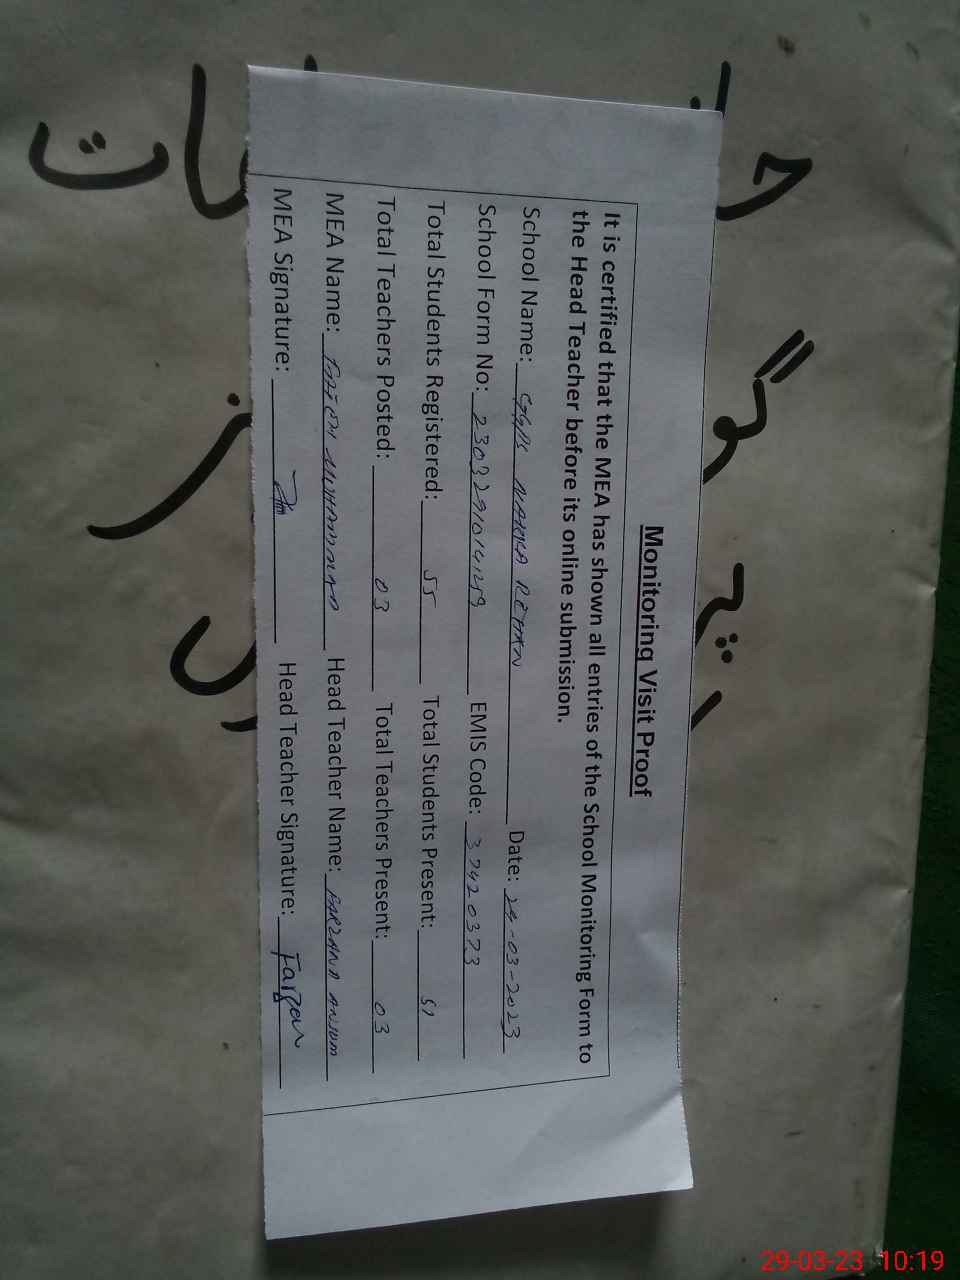 Monitoring Visit Proof
It is certified that the MEA has shown all entries of the School Monitoring Form to
the Head Teacher before its online submission.
School Name: GGPS REHAN Date: 29-03-2023
School Form No: EMIS Code: 37420373
Total Students Registered: 55 Total Students Present: 51
Total Teachers Posted: 03 Total Teachers Present: 03
MEA Name: MUHAMMAD Head Teacher Name: FARZANA ANJUM
MEA Signature: Head Teacher Signature: Farzan
29-03-23 10:19